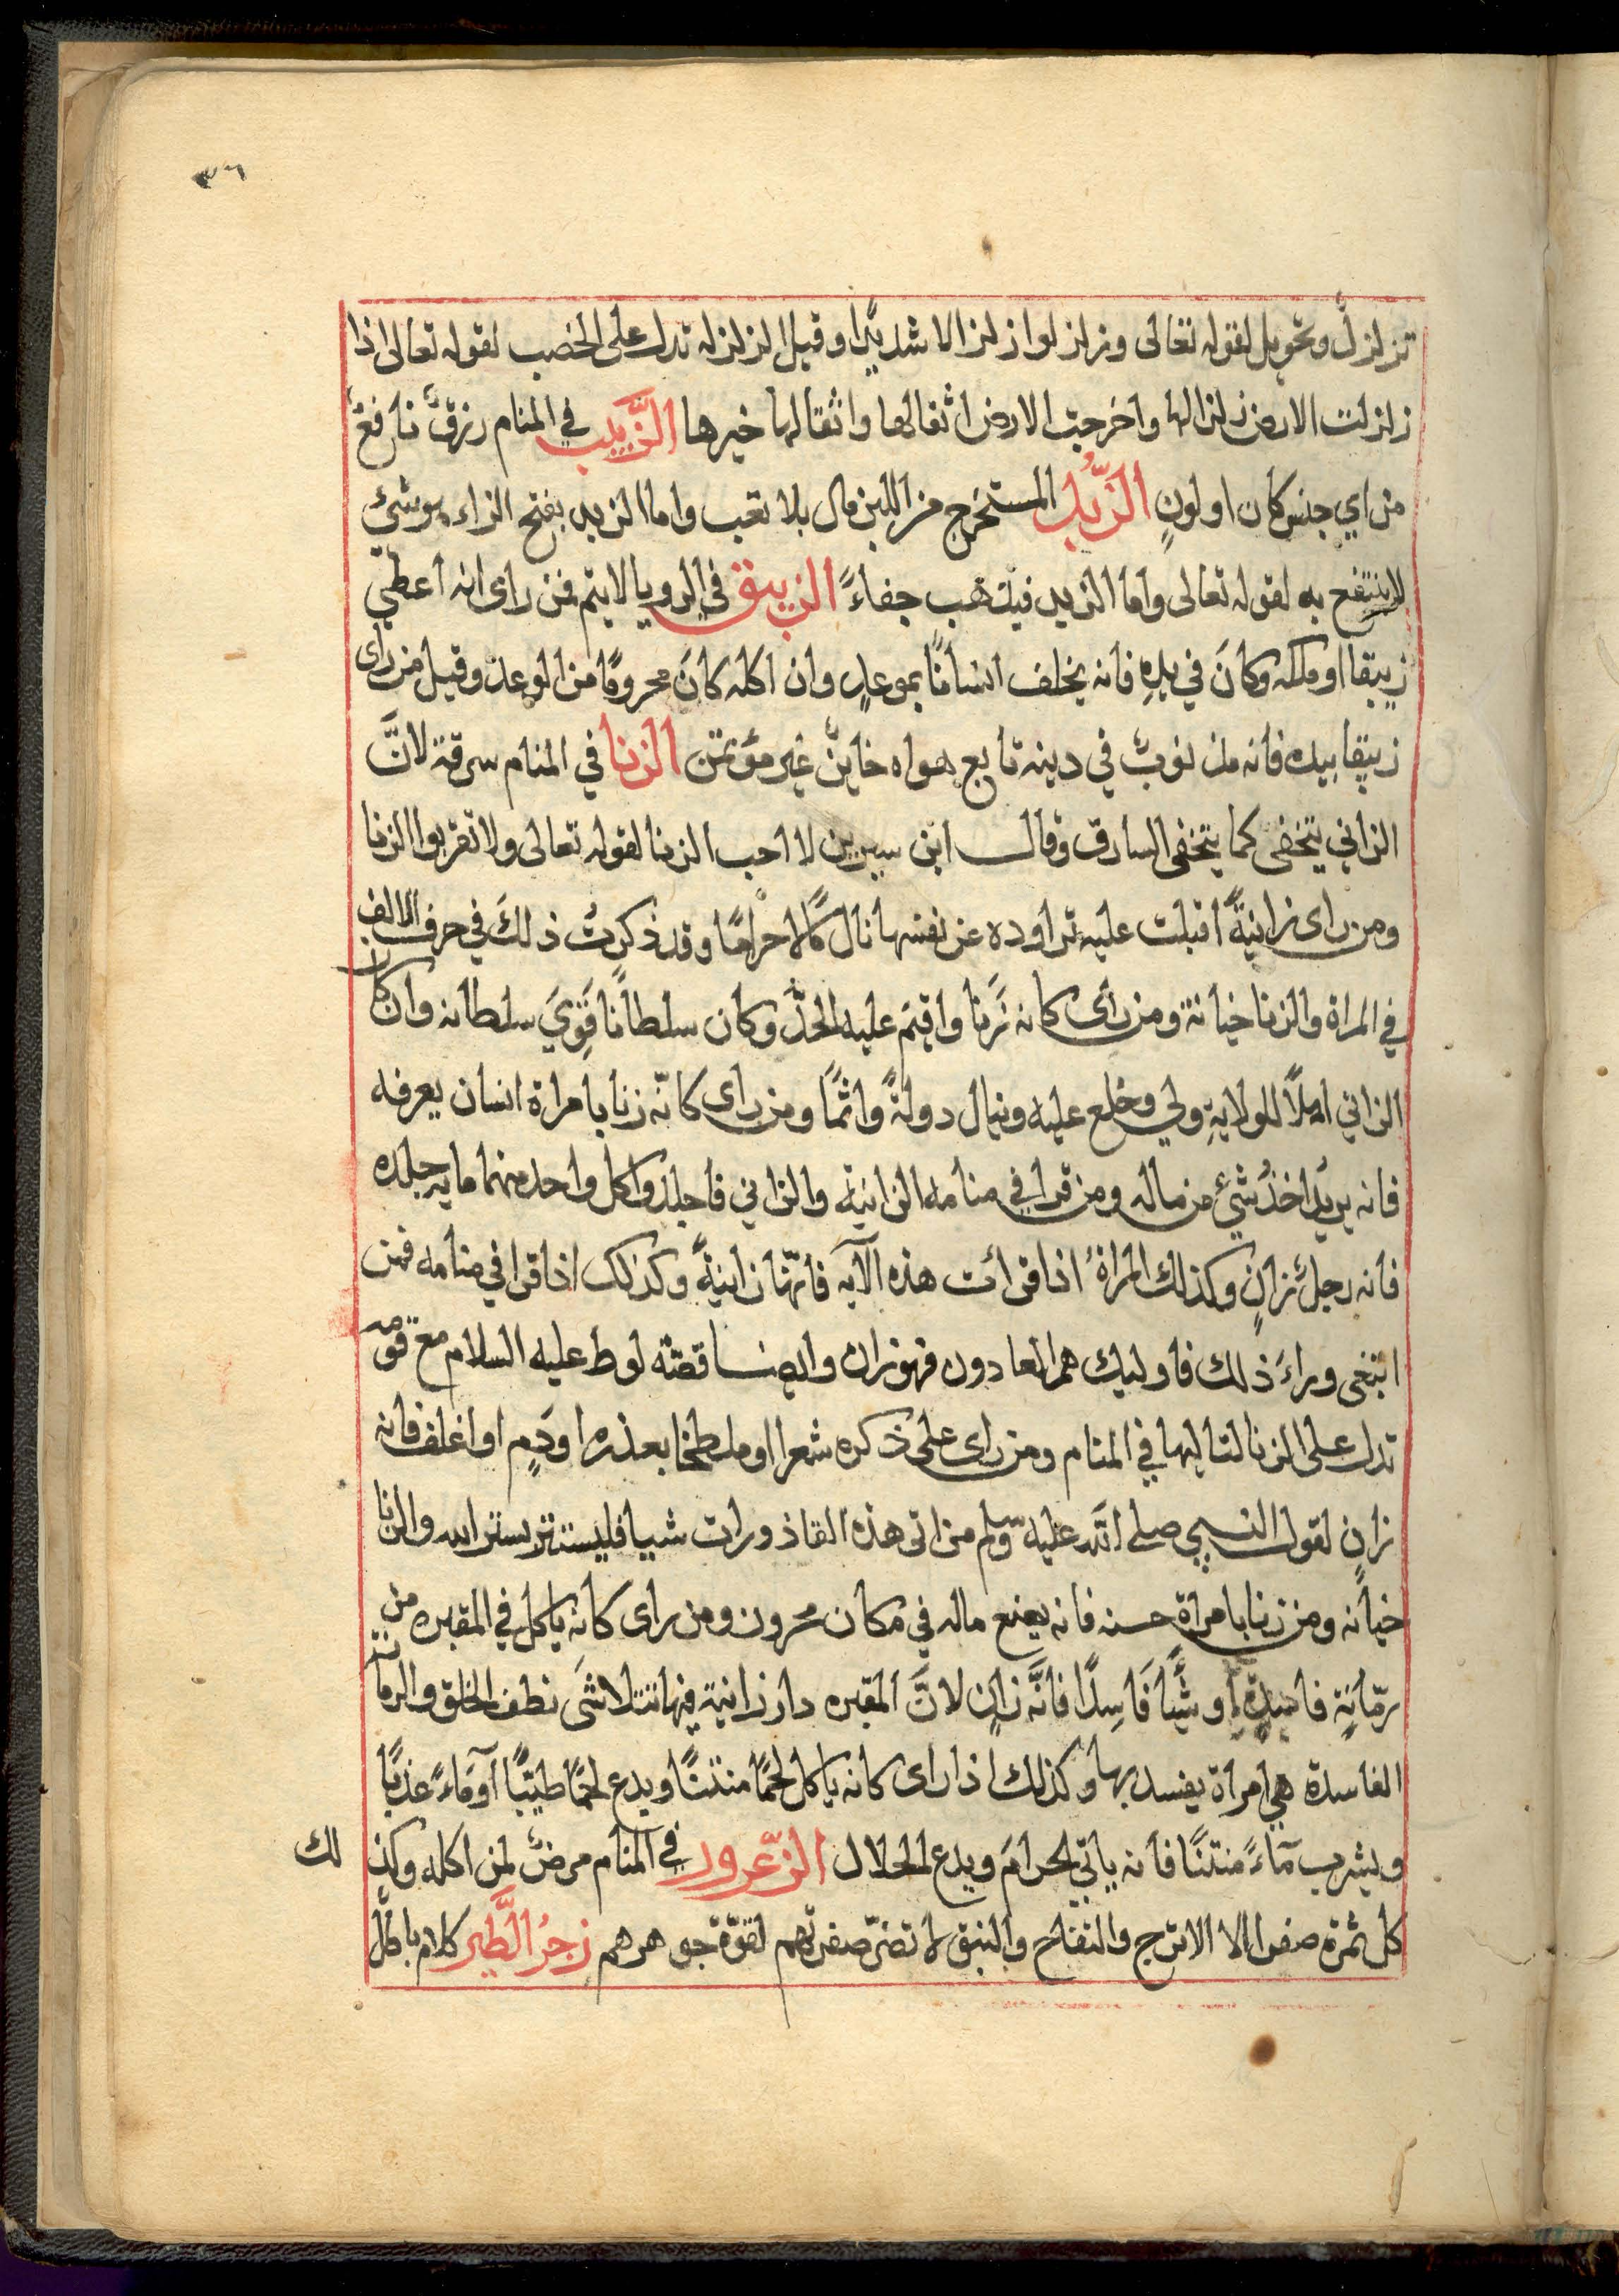 ٣٦
تزلزل وتحويل لقوله تعالى وزلزلوا زلزالا شديدا وقيل الزلزله تدل على الخصب لقوله تعالى اذا
زلزلت الارض زلزالها واخرجت الارض اثقالها واثقالها خيرها الزبيب في المنام رزق نافع
من اي جنس كان او لونٍ الزُّبد المستخرج من اللبن مال بلا تعب واما الزبد بفتح الزاء هو شئ
لا ينتفع به لقوله تعالى واما الزبد فيذهب جفاءً الزيبق في الرويا لا يتم فمن راى انه اعطي
زيبقا او ملكه وكانَ في يدِهِ فانه يخلف انسانًا بموعدٍ وان اكله كانَ محرومًا من الوعد وقيل من راى
زيبقا بيده فانه مذنوبٌ في دينه تابع هواه خاينٌ غير مؤتمن الزنا في المنام سرقة لانَّ
الزاني يتخفى كما يتخفى السارق وقال ابن سيرين لا احب الزنا لقوله تعالى ولا تقربوا الزنا
ومن راى زانيةً اقبلت عليه تراوده عن نفسها نال مالًا حرامًا وقد ذكرتُ ذلكَ في حرف الالف
في المراة والزنا خيانة ومن راى كانه زَنا واقيمَ عليه الحدّ وكان سلطانًا قَوِيَ سلطانه وان كان
الزاني اهلًا للولايةِ ولي وخلع عليه وينال دولةً واثمًا ومن راى كانّه زنا بامراة انسان يعرفه
فانه يريدُ اخذُ شيءٍ من ماله ومن قرا في منامه الزانية والزاني فاجلدوا كل واحد منهما مايه جلده
فانه رجلٌ زانٍ وكذلك المراةُ اذا قرأت هذه الآيه فانّها زانيةً وكذلك اذا قرا في منامه فمن
ابتغى وراءَ ذلك فاوليك هم العادون فهو زان وايضا قصّه لوط عليه السلام مع قومه
تدل على الزنا لتاليها في المنام ومن راى على ذكره شعرا او ملطخا بعذره او دَمٍ او اغلف فانه
زانٍ لقول النبي صلى الله عليه وسلم من اتى هذه القاذورات شيا فليستتر بستر الله والزنا
خيانه ومن زنا بامراة حسنه فانه يضع ماله في مكان محرون ومن راى كانه ياكل في المقبره من
رمّانةٍ فاسِدةٍ او شيًّا فَاسِدًا فانَّه زانٍ لانَّ المقبره دار زانية فيها تتلاشَى نطف الخلق والرمانة
الفاسدة هي امراة يفسد بها وكذلك اذا راى كانه ياكل لحمًا منتنًا ويدع لحمًا طيّبًا او مَاءً عذبًا
ويشرب مآءً منتنًا فانه ياتي الحرامَ ويدع الحلال الزّعرور في المنام مرضٌ لمن اكله وكذ
لك
كل ثمرة صفرا الا الاترج والتفاح والنبق لا تضرّ صفرتهم لقوّة جوهرهم زجرُ الطَّير كلام باطل